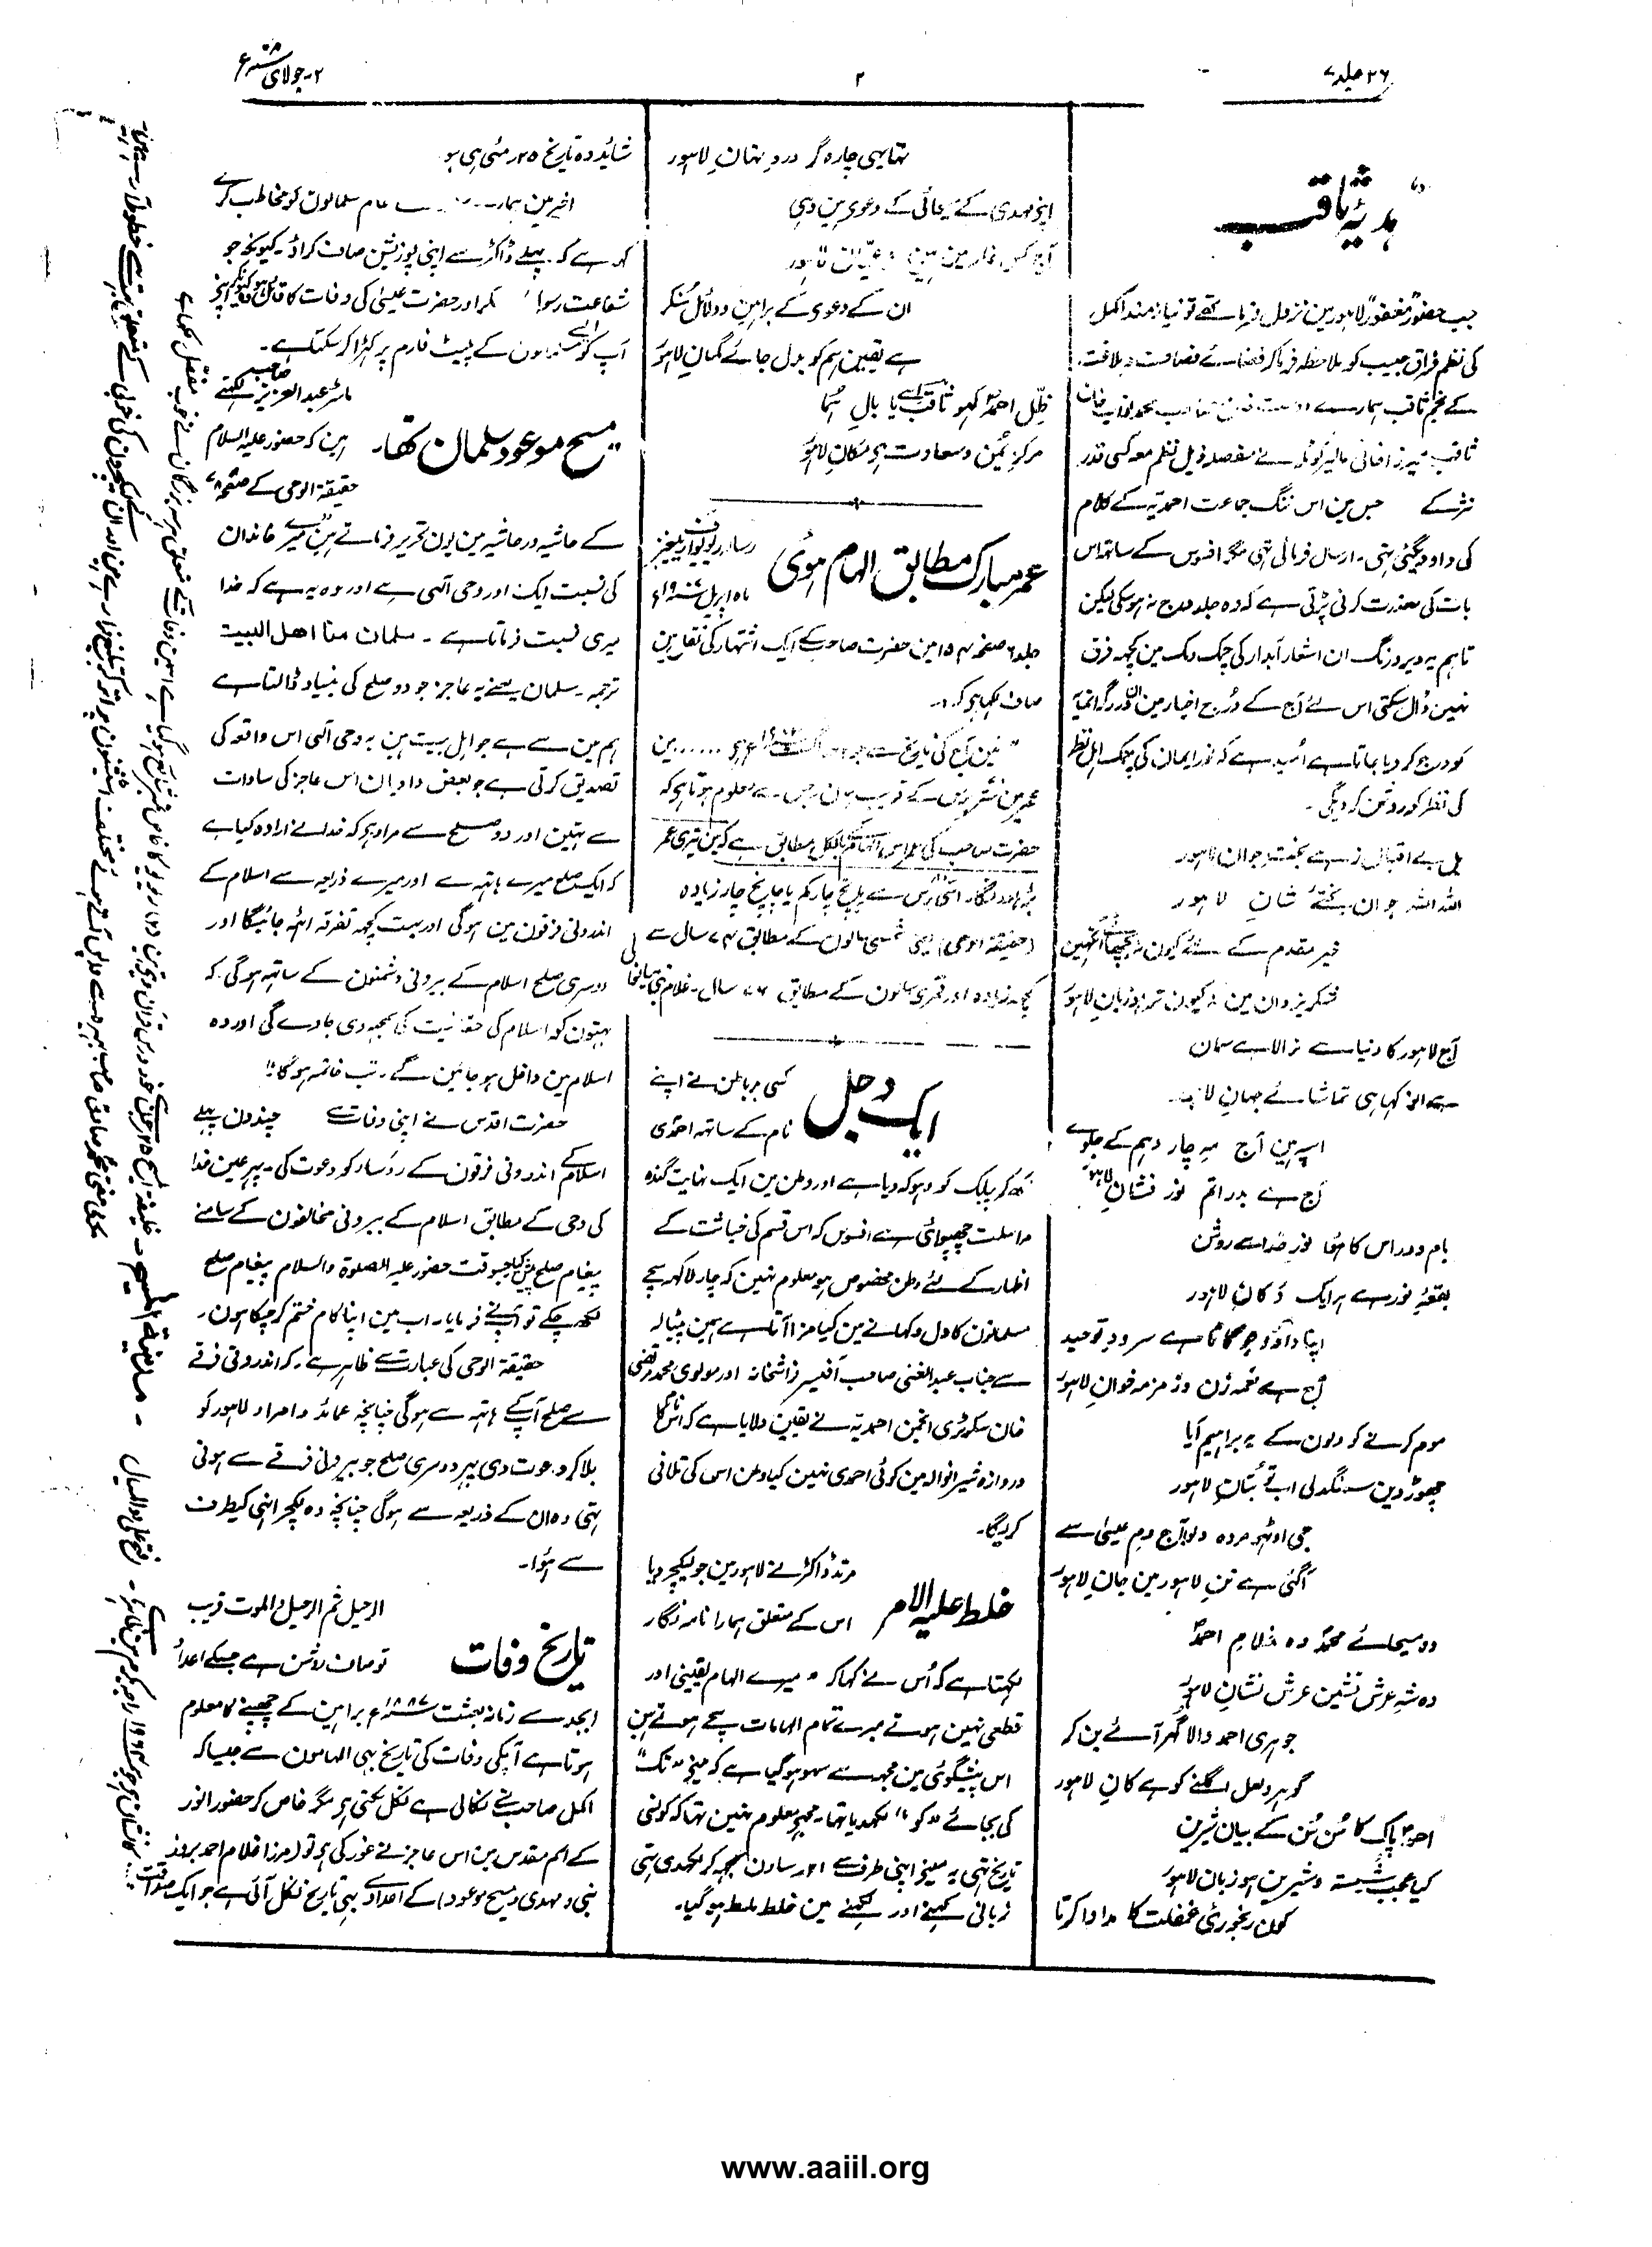 ۲۶ جلد ۷
۲
۲- جولائی ۱۹۰۸ء
ہدیۂ ثاقب
جب حضور مغفور لاہور مین نزول فرما تھے تو نیازمند اکمل
کی نظم فراق حبیب کو ملاحظہ فرماکر فضائے فصاحت و بلاغت
کے نجم ثاقب ہمارے دوست صاحب محمد نواب خان
ثاقب میرزا خانی مالیر کوٹلہ نے مفصلہ ذیل نظم معہ کسی قدر
نثر کے جس مین اس ننگ جماعت احمدیہ کے کلام
کی داد دیگئی تہی۔ ارسال فرمائی تہی مگر افسوس کے ساتہ اس
بات کی معذرت کرنی پڑتی ہے کہ وہ جلد درج نہ ہوسکی لیکن
تاہم یہ دیر و درنگ ان اشعار آبدار کی چمک دمک مین کچہہ فرق
نہین ڈال سکتی اس لئے آج کے دن درج اخبار مین ان گرانمایہ
کو درج کر دیا جاتا ہے اُمید ہے کہ نور ایمان کی چمک اہل نظر
کی نظر کو روشن کردیگی۔
بل بے اقبال زہے بخت جوان لاہور
اللہ اللہ جوان بختئے شانِ لاہور
خیر مقدم کے لئے کیون نہ بچہین آنکہین
شکر یزدان مین ہو کیون تر نہ زبانِ لاہور
آج لاہور کا دنیا سے نرالا ہے سمان
ہے انوکہا ہی تماشائے جہانِ لاہور
اسپہ ہین آج مہِ چار دہم کے جلوے
آج ہے بدر اتم نور فشانِ لاہور
بام و در اس کا ہوا نور خدا سے روشن
بقعۂ نور ہے ہر ایک دُکانِ لاہور
اپنا داؤد جو گاتا ہے سرودِ توحید
آج ہے نغمہ زن و زمزمہ خوانِ لاہور
موم کرنے کو دلون کے یہ براہیم آیا
چھوڑدین سنگدلی اب تو بُتانِ لاہور
جی اوٹہو مردہ دلو آج دمِ عیسیٰ سے
آگئی ہے تنِ لاہور مین جانِ لاہور
وہ مسیحائے محمدؐ وہ غلامِ احمدؐ
وہ شہِ عرش نشین عرش نشانِ لاہور
جوہری احمد والا گہر آئے بن کر
گوہر و لعل اگلنے کو ہے کانِ لاہور
احمدِ پاک کا سُن سُن کے بیان شیرین
کیا عجب شستہ و شیرین ہو زبان لاہور
کون رنجوریٔ غفلت کا مداوا کرتا
تہا یہی چارہ گر دردِ نہانِ لاہور
اپنے مہدی کے
آج کس
ان کے دعوی کے براہین و دلائل سُنکر
ہے یقین ہم کو بدل جائے گمانِ لاہور
ظِلِ احمدؐ کہو ثاقب اسے یا بالِ ہما
مرکزِ یُمن و سعادت ہے مکانِ لاہور
عمر مبارک مطابق الہام ہوئی
رسالہ ریویو آف ریلیجنز
ماہ اپریل ۱۹۰۳ء
جلد ۲ صفحہ ۱۵۴ مین حضرت صاحب کے ایک اشتہار کی نقل مین
صاف لکہا ہے کہ۔
مین آج کی تاریخ سے جو ...... مین
عمر مین ستر برس کے قریب ہون جس سے معلوم ہوتا ہے کہ
حضرت صاحب کی بالکل مطابق ہے کہ مین تیری عمر
بڑہاؤنگا۔ اسّی برس سے پانچ چار کم یا پانچ چار زیادہ
(حقیقۃ الوحی) یعنی شمسی سالون کے مطابق ۷۴ سال سے
کچہہ زیادہ اور قمری سالون کے مطابق ۷۶ سال۔
ایک دجل
کسی بد باطن نے اپنے
نام کے ساتہ احمدی
لکھ کر پبلک کو دہوکہ دیا ہے اور وطن مین ایک نہایت گندہ
مراسلت چھپوائی ہے افسوس کہ اس قسم کی خباثت کے
اظہار کے لئے وطن مخصوص ہو معلوم نہین کہ چار لاکہہ سچے
مسلمانون کا دل دکہانے مین کیا مزا آتا ہے ہمین پٹیالہ
سے جناب عبدالغنی صاحب افیسر فراشخانہ اور مولوی محمد مرتضیٰ
خان سکرٹری انجمن احمدیہ نے یقین دلایا ہے کہ اس نام کا
دروازہ شیرانوالہ مین کوئی احمدی نہین کیا وطن اس کی تلافی
کریگا۔
خلط علیہ الامر
مرتد ڈاکٹر نے لاہور مین جو لیکچر دیا
اس کے متعلق ہمارا نامہ نگار
لکہتا ہے کہ اُس نے کہا کہ میرے الہام یقینی اور
قطعی نہین ہوتے میرے تمام الہامات سچے ہوتے ہین
اس پیشگوئی مین مجہہ سے سہو ہو گیا ہے کہ مین نے "تک"
کی بجائے "کو" لکہدیا تہا۔ مجہے معلوم نہین تہا کہ کونسی
تاریخ تہی یہ مینے اپنی طرف سے ۲۱ ساون سمجہہ کر لکہدی تہی
زبانی کہنے اور لکہنے مین خلط ملط ہو گیا۔
شائد وہ تاریخ ۲۵ مئی ہی ہو۔
اخیر مین ہمارے عام مسلمانون کو مخاطب کرکے
کہہ ہے کہ پہلے ڈاکٹر سے اپنی پوزیشن صاف کراؤ۔ کیونکہ جو
شفاعت رسول کا منکر اور حضرت عیسیٰ کی وفات کا قائل ہو وہ کیونکر اپنے
آپ کو مسلمانون کے پلیٹ فارم پر کہڑا کر سکتا ہے۔
مسیح موعود سلمان تھا۔
ماسٹر عبدالعزیز صاحب لکہتے
ہین کہ حضور علیہ السلام
حقیقۃ الوحی کے صفحہ ۷۸
کے حاشیہ در حاشیہ مین یون تحریر فرماتے ہین میرے خاندان
کی نسبت ایک اور وحی الٰہی ہے اور وہ یہ ہے کہ خدا
میری نسبت فرماتا ہے۔ سلمان منا اھل البیت
ترجمہ۔ سلمان یعنے یہ عاجز جو دو صلح کی بنیاد ڈالتا ہے
ہم مین سے ہے جو اہل بیت ہین یہ وحی الٰہی اس واقعہ کی
تصدیق کرتی ہے جو بعض دادیان اس عاجز کی سادات
سے تہین اور دو صلح سے مراد یہ ہے کہ خدا نے ارادہ کیا ہے
کہ ایک صلح میرے ہاتہہ سے اور میرے ذریعہ سے اسلام کے
اندرونی فرقون مین ہوگی اور بہت کچہہ تفرقہ اٹہہ جائیگا اور
دوسری صلح اسلام کے بیرونی دشمنون کے ساتہہ ہوگی۔ کہ
بہتون کو اسلام کی حقانیت کی سمجہہ دی جاوے گی اور وہ
اسلام مین داخل ہو جائین گے۔ تب خاتمہ ہوگا۔
حضرت اقدس نے اپنی وفات سے چند دن پہلے
اسلام کے اندرونی فرقون کے رؤساء کو دعوت کی۔ پہر عین خدا
کی وحی کے مطابق اسلام کے بیرونی مخالفون کے سامنے
پیغام صلح پیش کیا جسوقت حضور علیہ الصلوۃ والسلام پیغام صلح
لکھ چکے تو آپنے فرمایا۔ اب مین اپنا کام ختم کر چکا ہون۔
حقیقۃ الوحی کی عبارت سے ظاہر ہے۔ کہ اندرونی فرقے
سے صلح آپکے ہاتہہ سے ہوگی چنانچہ عمائد و امراء لاہور کو
بلاکر دعوت دی پہر دوسری صلح جو بیرونی فرقے سے ہونی
تہی وہ ان کے ذریعہ سے ہوگی چنانچہ وہ لیکچر انہی کیطرف
سے ہُوا۔
تاریخ وفات
الرحیل ثم الرحیل والموت قریب
تو صاف روشن ہے جسکے اعداد
ابجد سے زمانہ بعثت براہین کے چھپنے کا معلوم
ہوتا ہے آپکی وفات کی تاریخ بہی الہامون سے جیسا کہ
اکمل صاحب نے نکالی ہے نکل سکتی ہے مگر خاص کر حضور انور
کے اسم مقدس مین اس عاجز نے غور کی ہے تو (مرزا غلام احمد بروز
نبی و مہدی و مسیح موعود) کے اعداد سے بہی تاریخ نکل آئی ہے جو ایک
www.aaiil.org